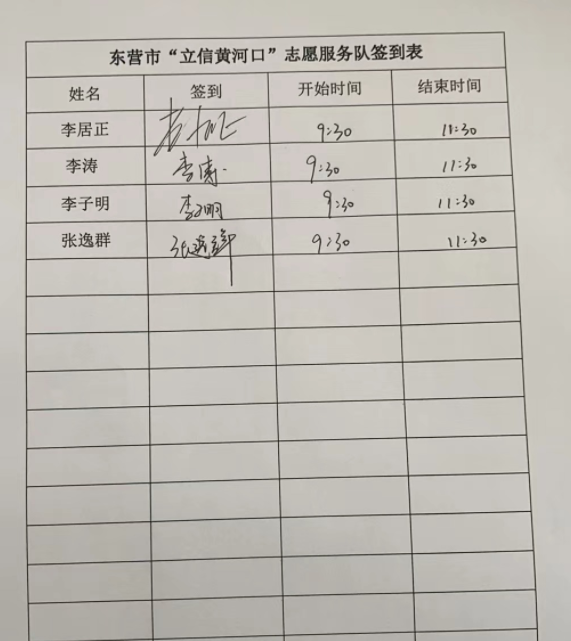 东营市“立信黄河口”志愿服务队签到表
姓名 签到 开始时间 结束时间
李居正 9:30 11:30
李涛 李涛 9:30 11:30
李子明 李子明 9:30 11:30
张逸群 张逸群 9:30 11:30